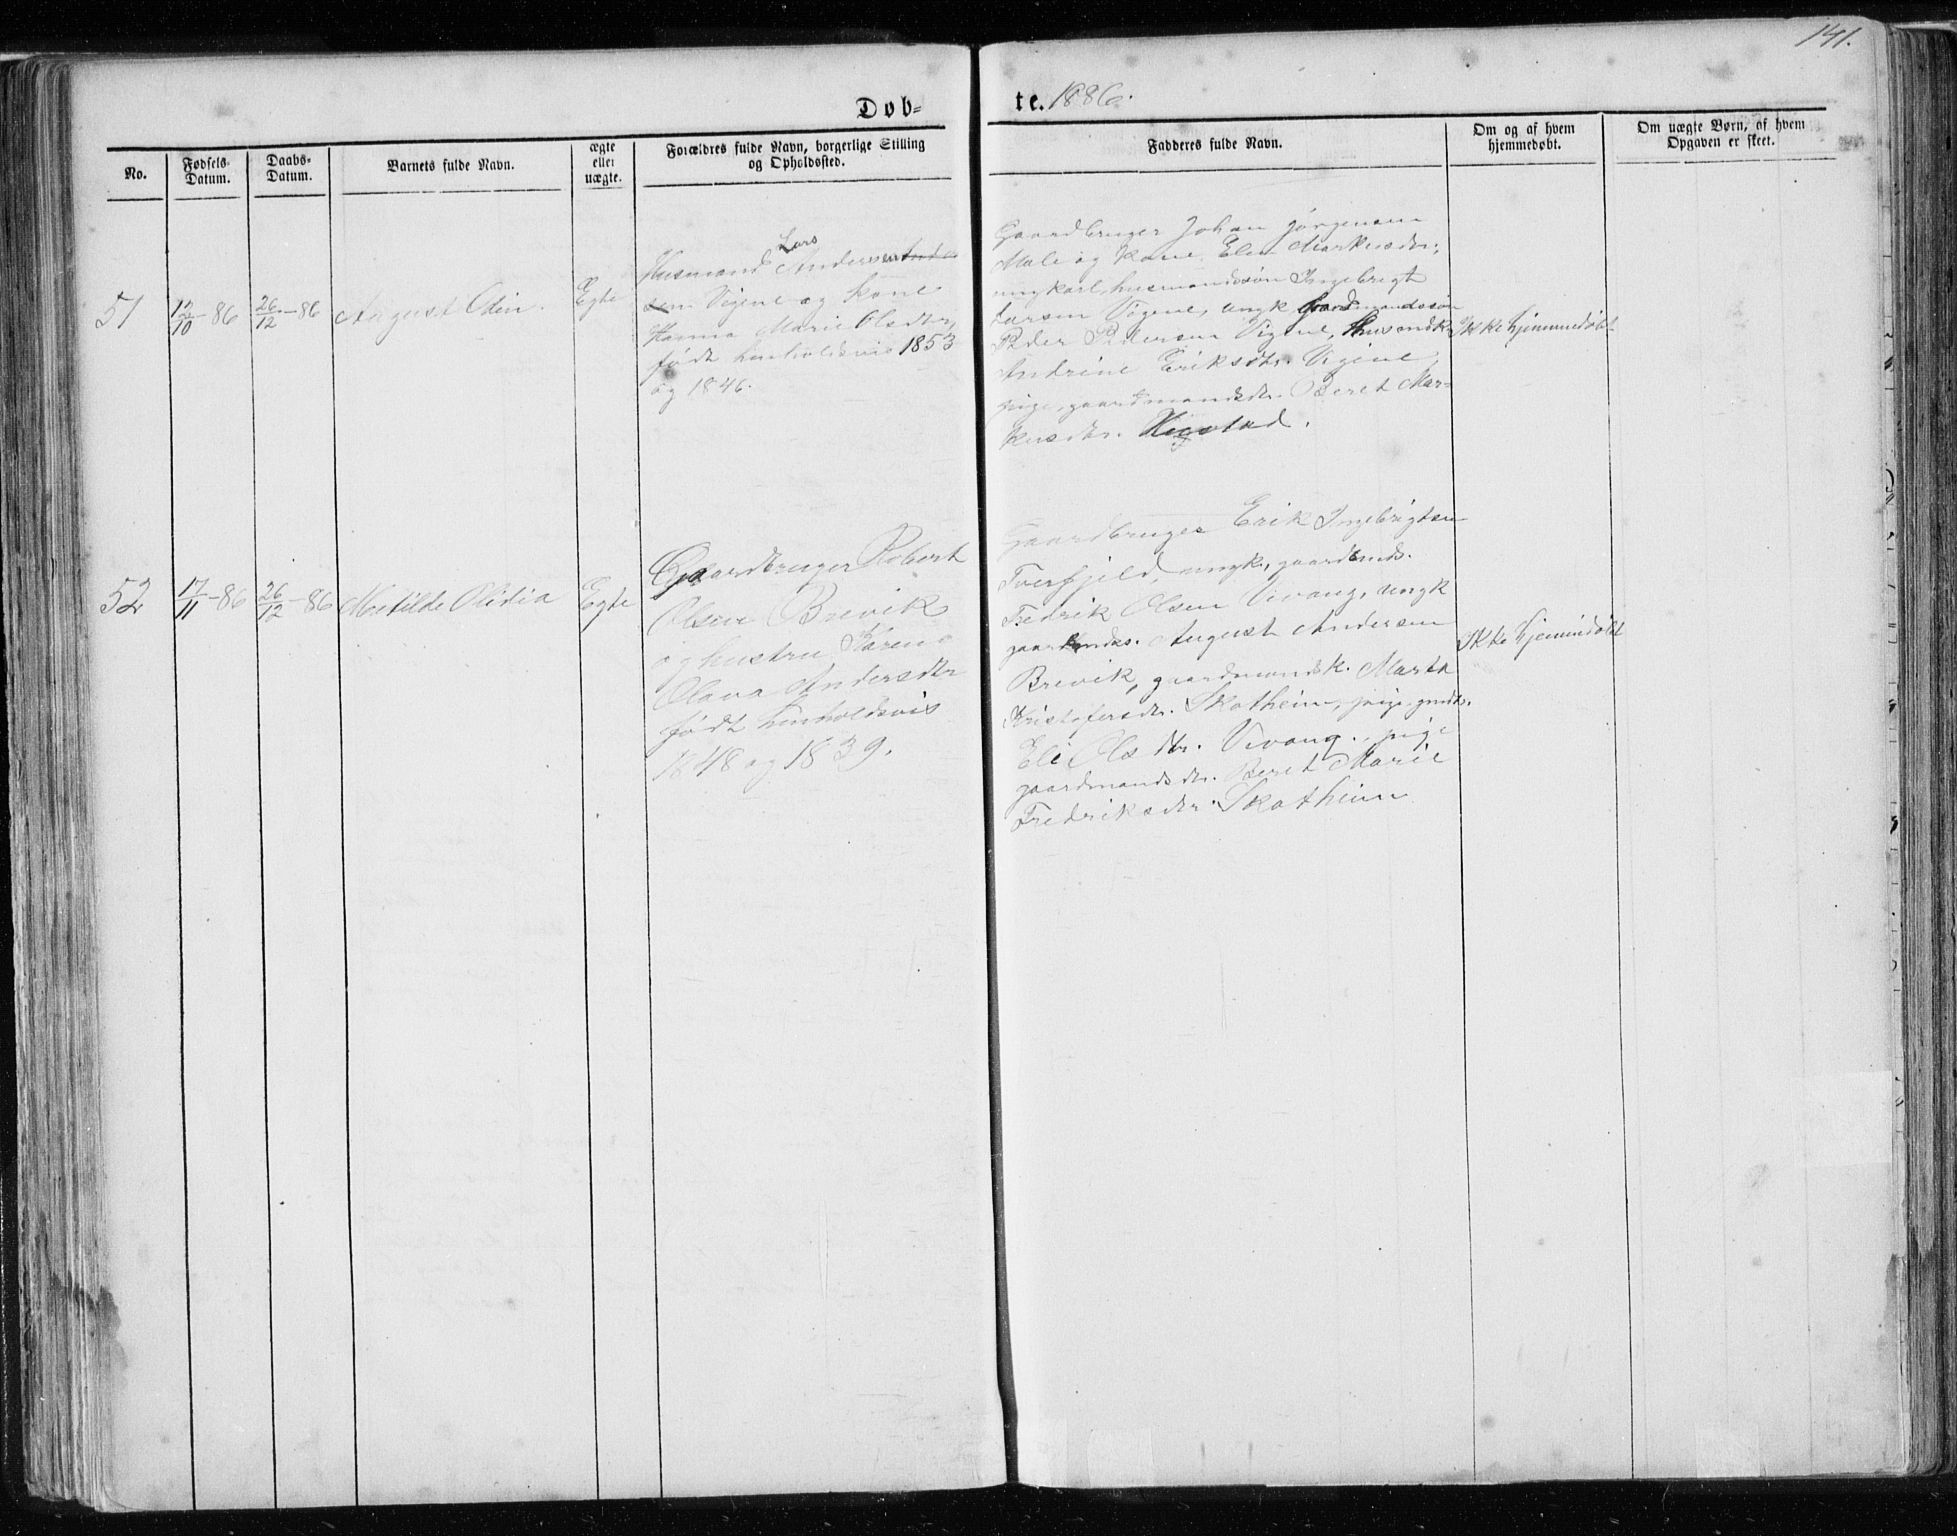 141.
Døb=
te. 1886.
No.
Fødsels-
Datum.
Daabs-
Datum.
Barnets fulde Navn.
ægte
eller
uægte.
Forældres fulde Navn, borgerlige Stilling
og Opholdssted.
Fadderes fulde Navn.
Om og af hvem
hjemmedøbt.
Om uægte Børn, af hvem
Opgaven er skeet.
51
12/10 - 86
26/12 - 86
August Odin.
Egte
Lars
Husmand Andersen
sen Vigene og Kone
Hanna Marie Olsdtr,
født henholdsvis 1853
og 1846.
Gaardbruger Johan Jørgensen
Male og Kone Elen Markusdtr.,
ungkarl husmandssøn Ingebrigt
Larsen Vigene, ungk gaardmandssøn
Peder Pedersen Vigene, husmdk
Andrine Eriksdtr. Vigene,
pige, gaardmandsdtr. Beret Mar=
kusdtr.
Ikke hjemmedøbt
52
17/11 - 86
26/12 - 86
Matilde Olidia
Egte
Gaardbruger Robert
Olsen Brevik
og hustru Karen
Olava Andersdtr
født henholdsvis
1848 og 1839.
Gaardbruger Erik Ingebrigtsen
Tverfjeld, ungk,
Fredrik Olsen Vivang, ungk
August Andersen
Brevik, gaardmandsk. Marta
Kristofersdtr. Skatheim, pige
Eli Olsdtr. Vivang, pige
gaardmandsdtr. Beret Marie
Fredriksdtr. Skatheim
Ikke hjemmedøbt